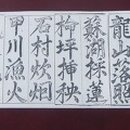 龍山落照
蘇湖採蓮
柳坪挿秧
石村炊烟
甲川漁火